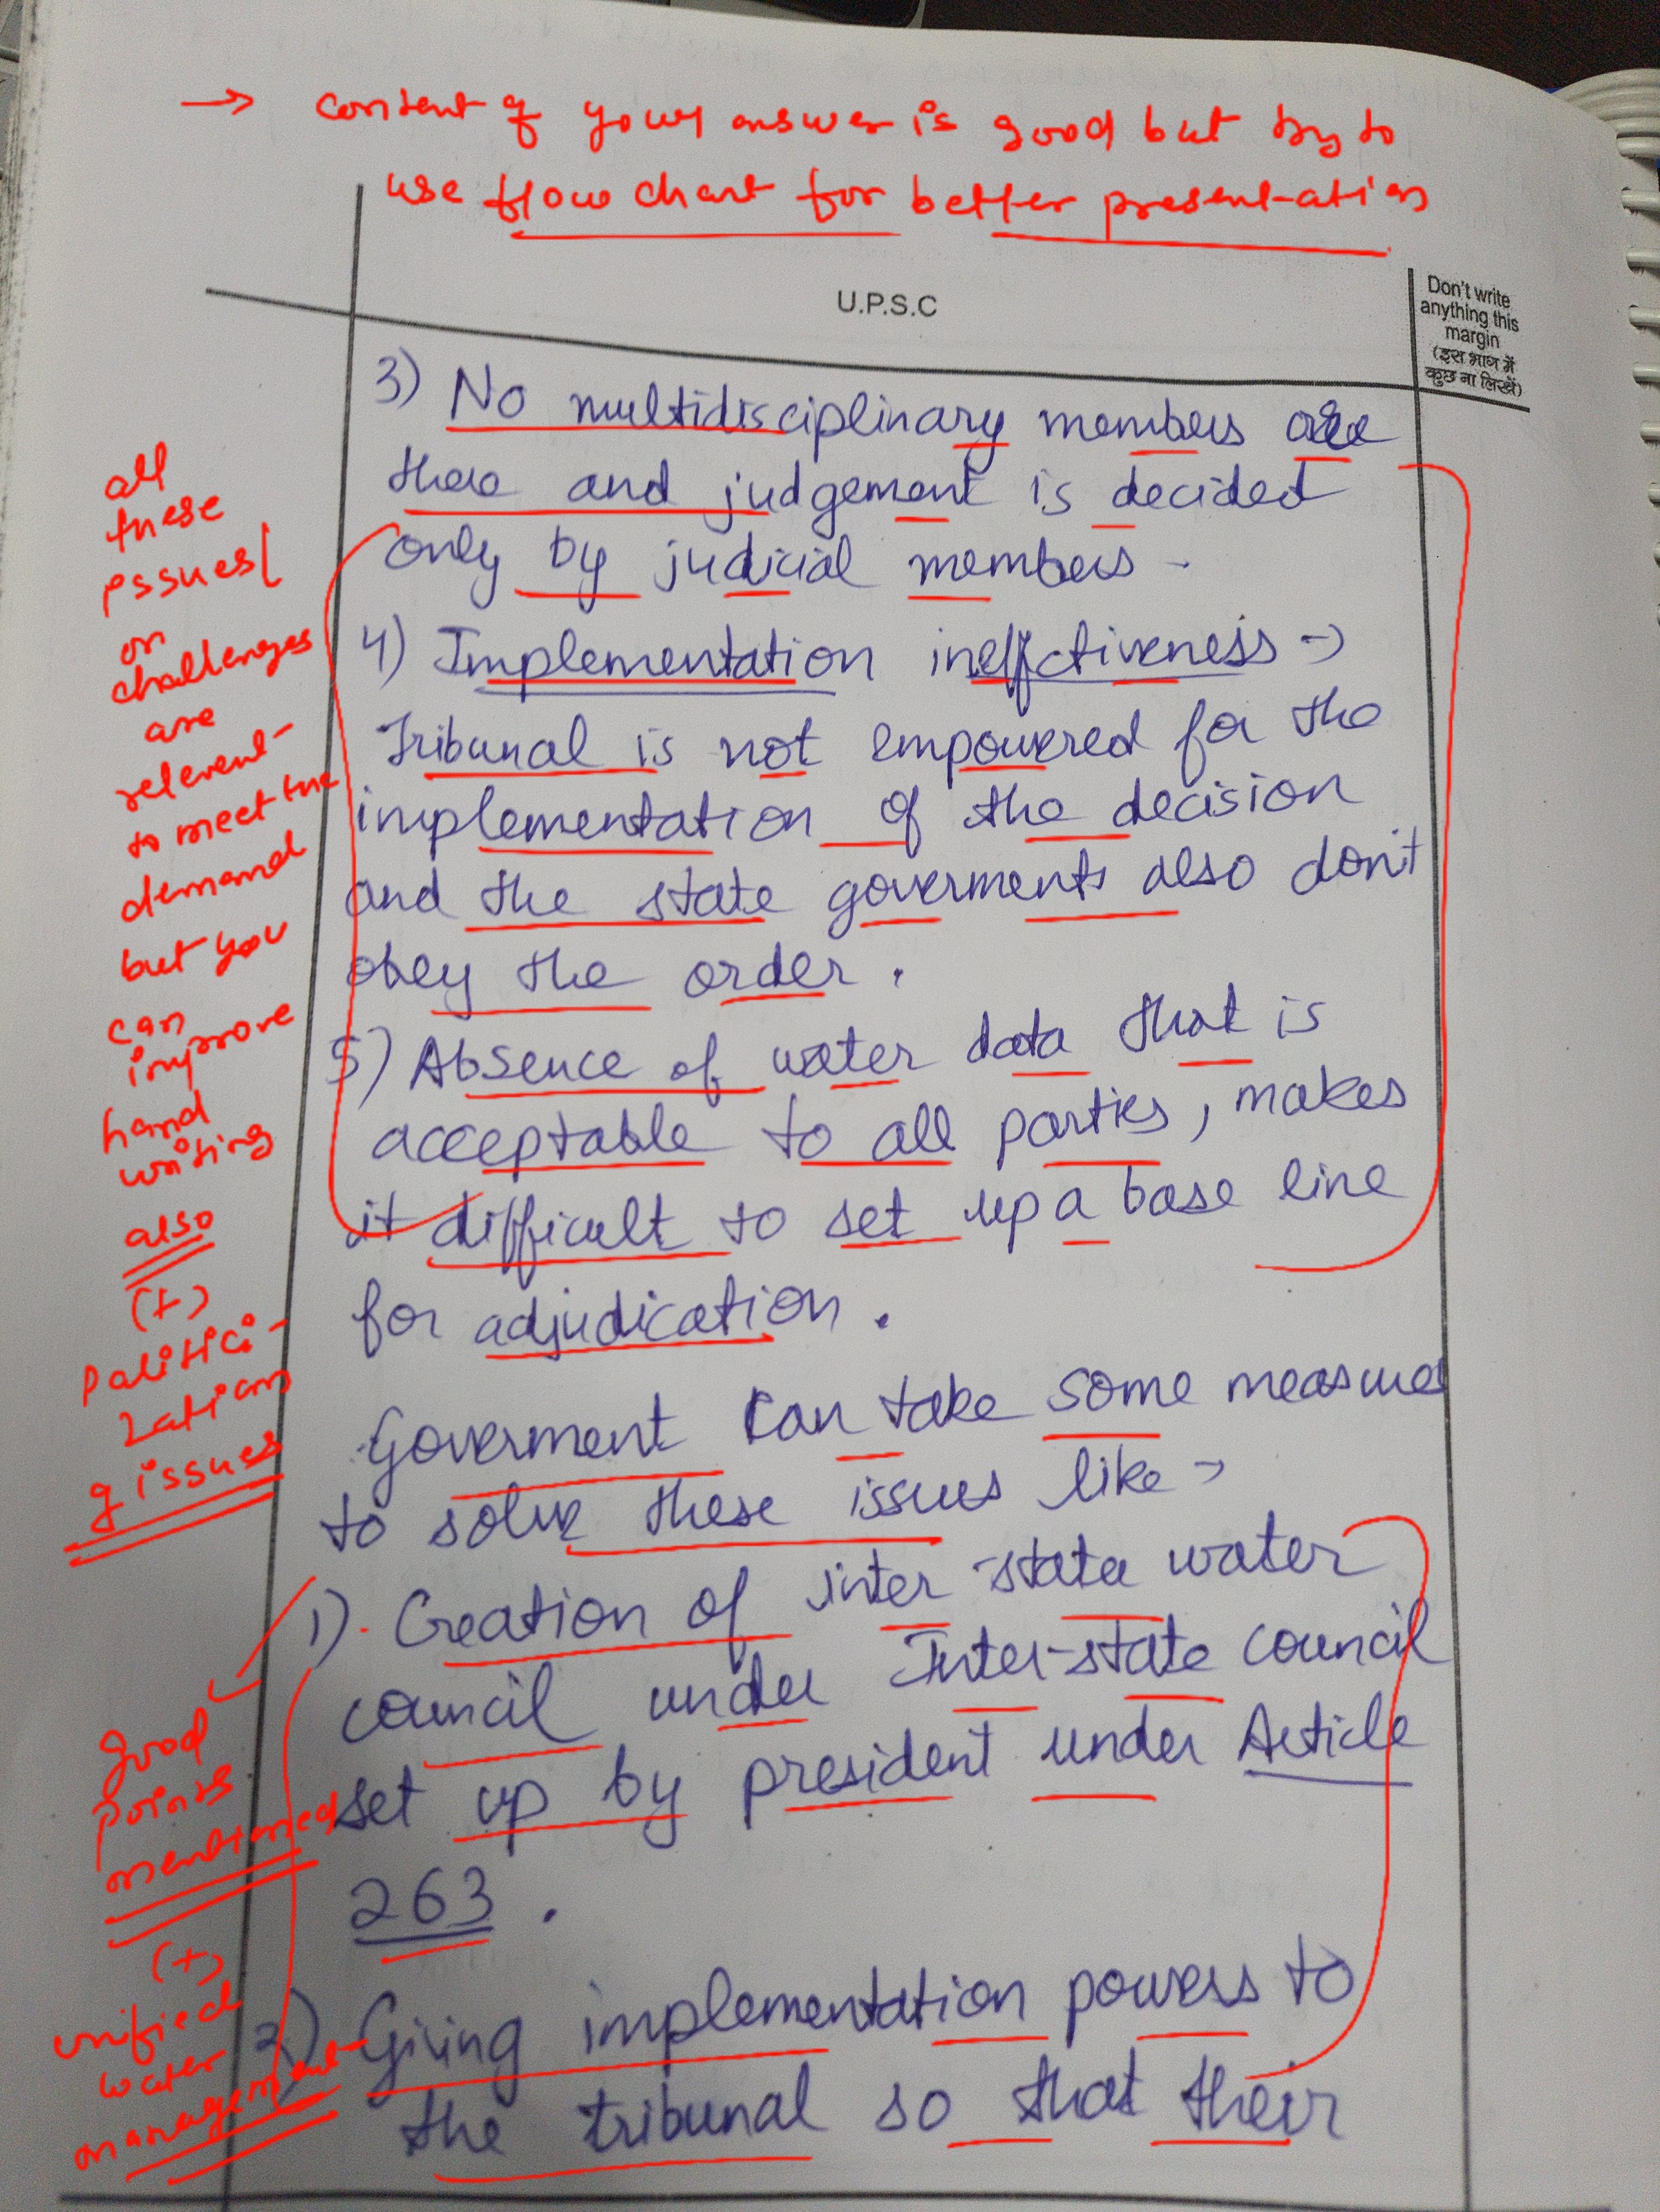 → content of your answer is good but try to
use flow chart for better present-ation
U.P.S.C
Don't write
anything this
margin
(इस भाग में
कुछ ना लिखें)
3) No multidisciplinary members are
there and judgement is decided
only by judicial members -
4) Implementation ineffctiveness →
Tribunal is not empowered for the
implementation of the decision
and the state goverments also don't
obey the order.
5) Absence of water data that is
acceptable to all parties, makes
it difficult to set up a base line
for adjudication.
Goverment can take some measures
to solve these issues like →
1). Creation of inter-state water
council under Inter-state council
set up by president under Article
263.
2) Giving implementation powers to
the tribunal so that their
all
these
issues/
or
challenges
are
relevent
to meet the
demand
but you
can
improve
hand
writing
also
(+)
Politici-
zation
of issues
good
points
mentioned
(+)
unified
water
management